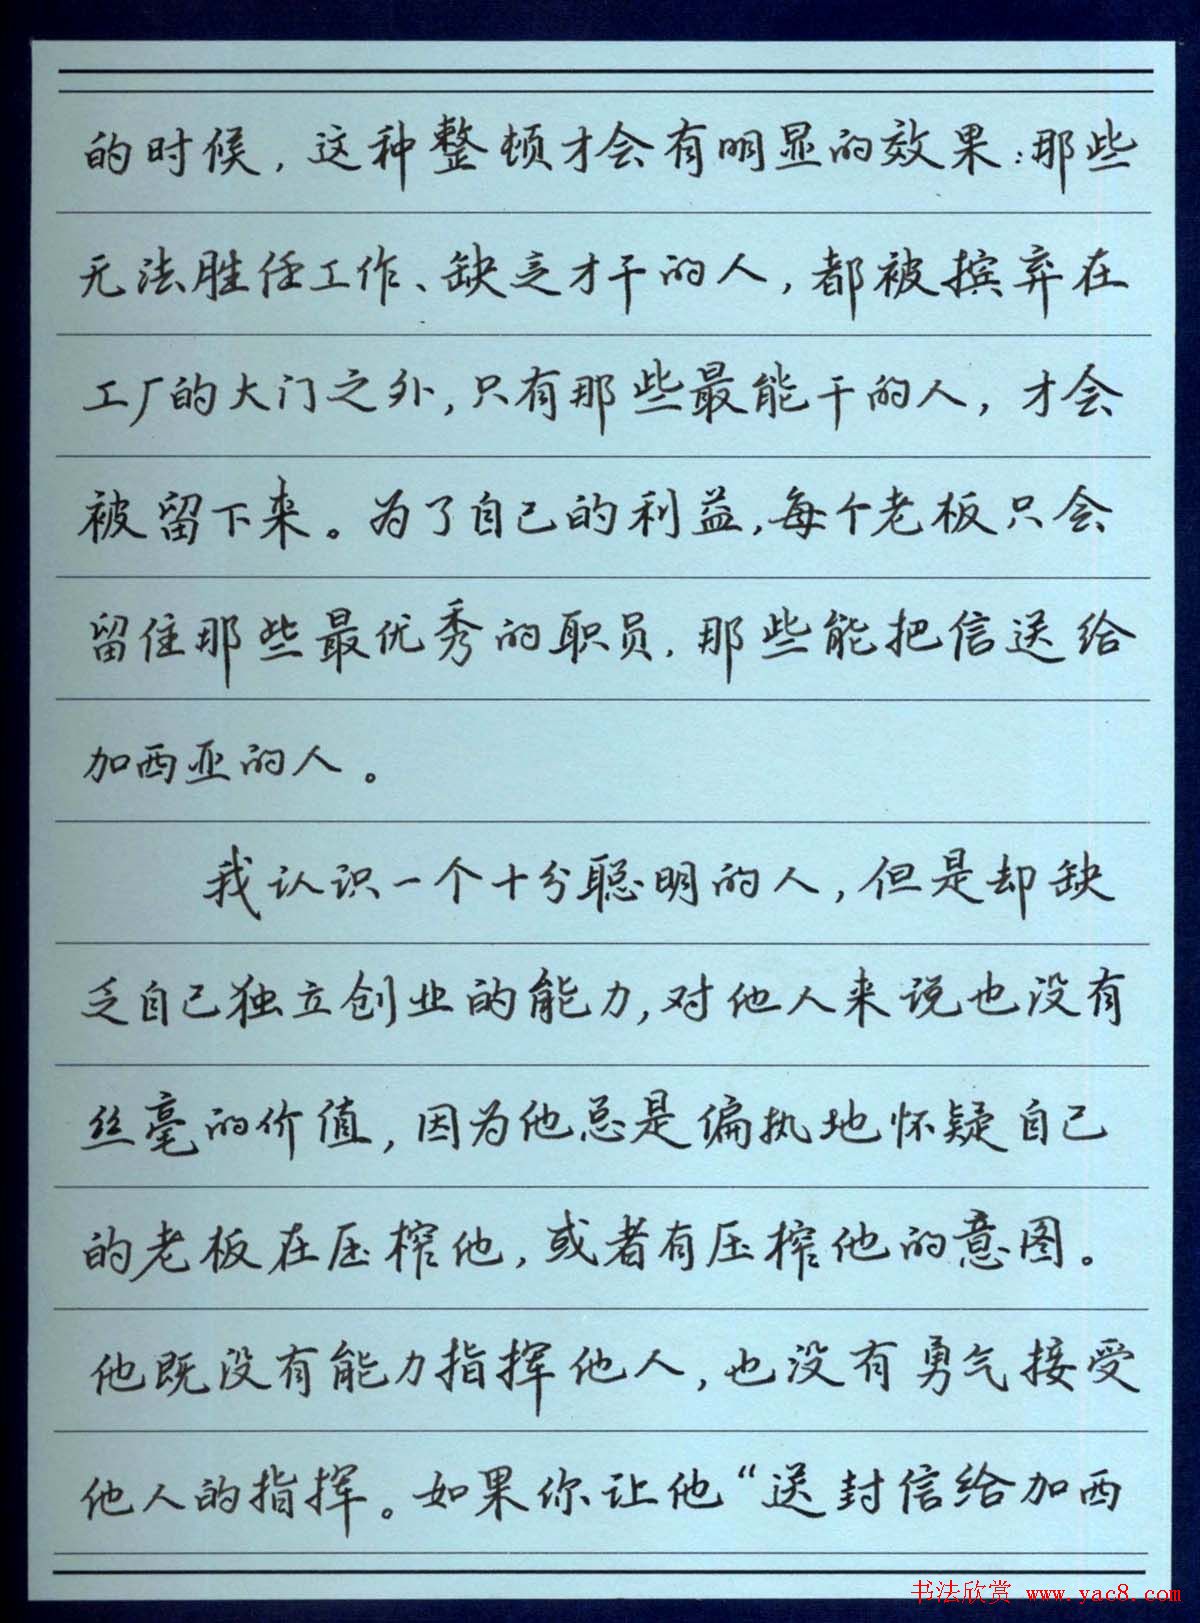 的时候，这种整顿才会有明显的效果：那些
无法胜任工作、缺乏才干的人，都被摈弃在
工厂的大门之外，只有那些最能干的人，才会
被留下来。为了自己的利益，每个老板只会
留住那些最优秀的职员，那些能把信送给
加西亚的人。
我认识一个十分聪明的人，但是却缺
乏自己独立创业的能力，对他人来说也没有
丝毫的价值，因为他总是偏执地怀疑自己
的老板在压榨他，或者有压榨他的意图。
他既没有能力指挥他人，也没有勇气接受
他人的指挥。如果你让他“送封信给加西
书法欣赏 www.yac8.com